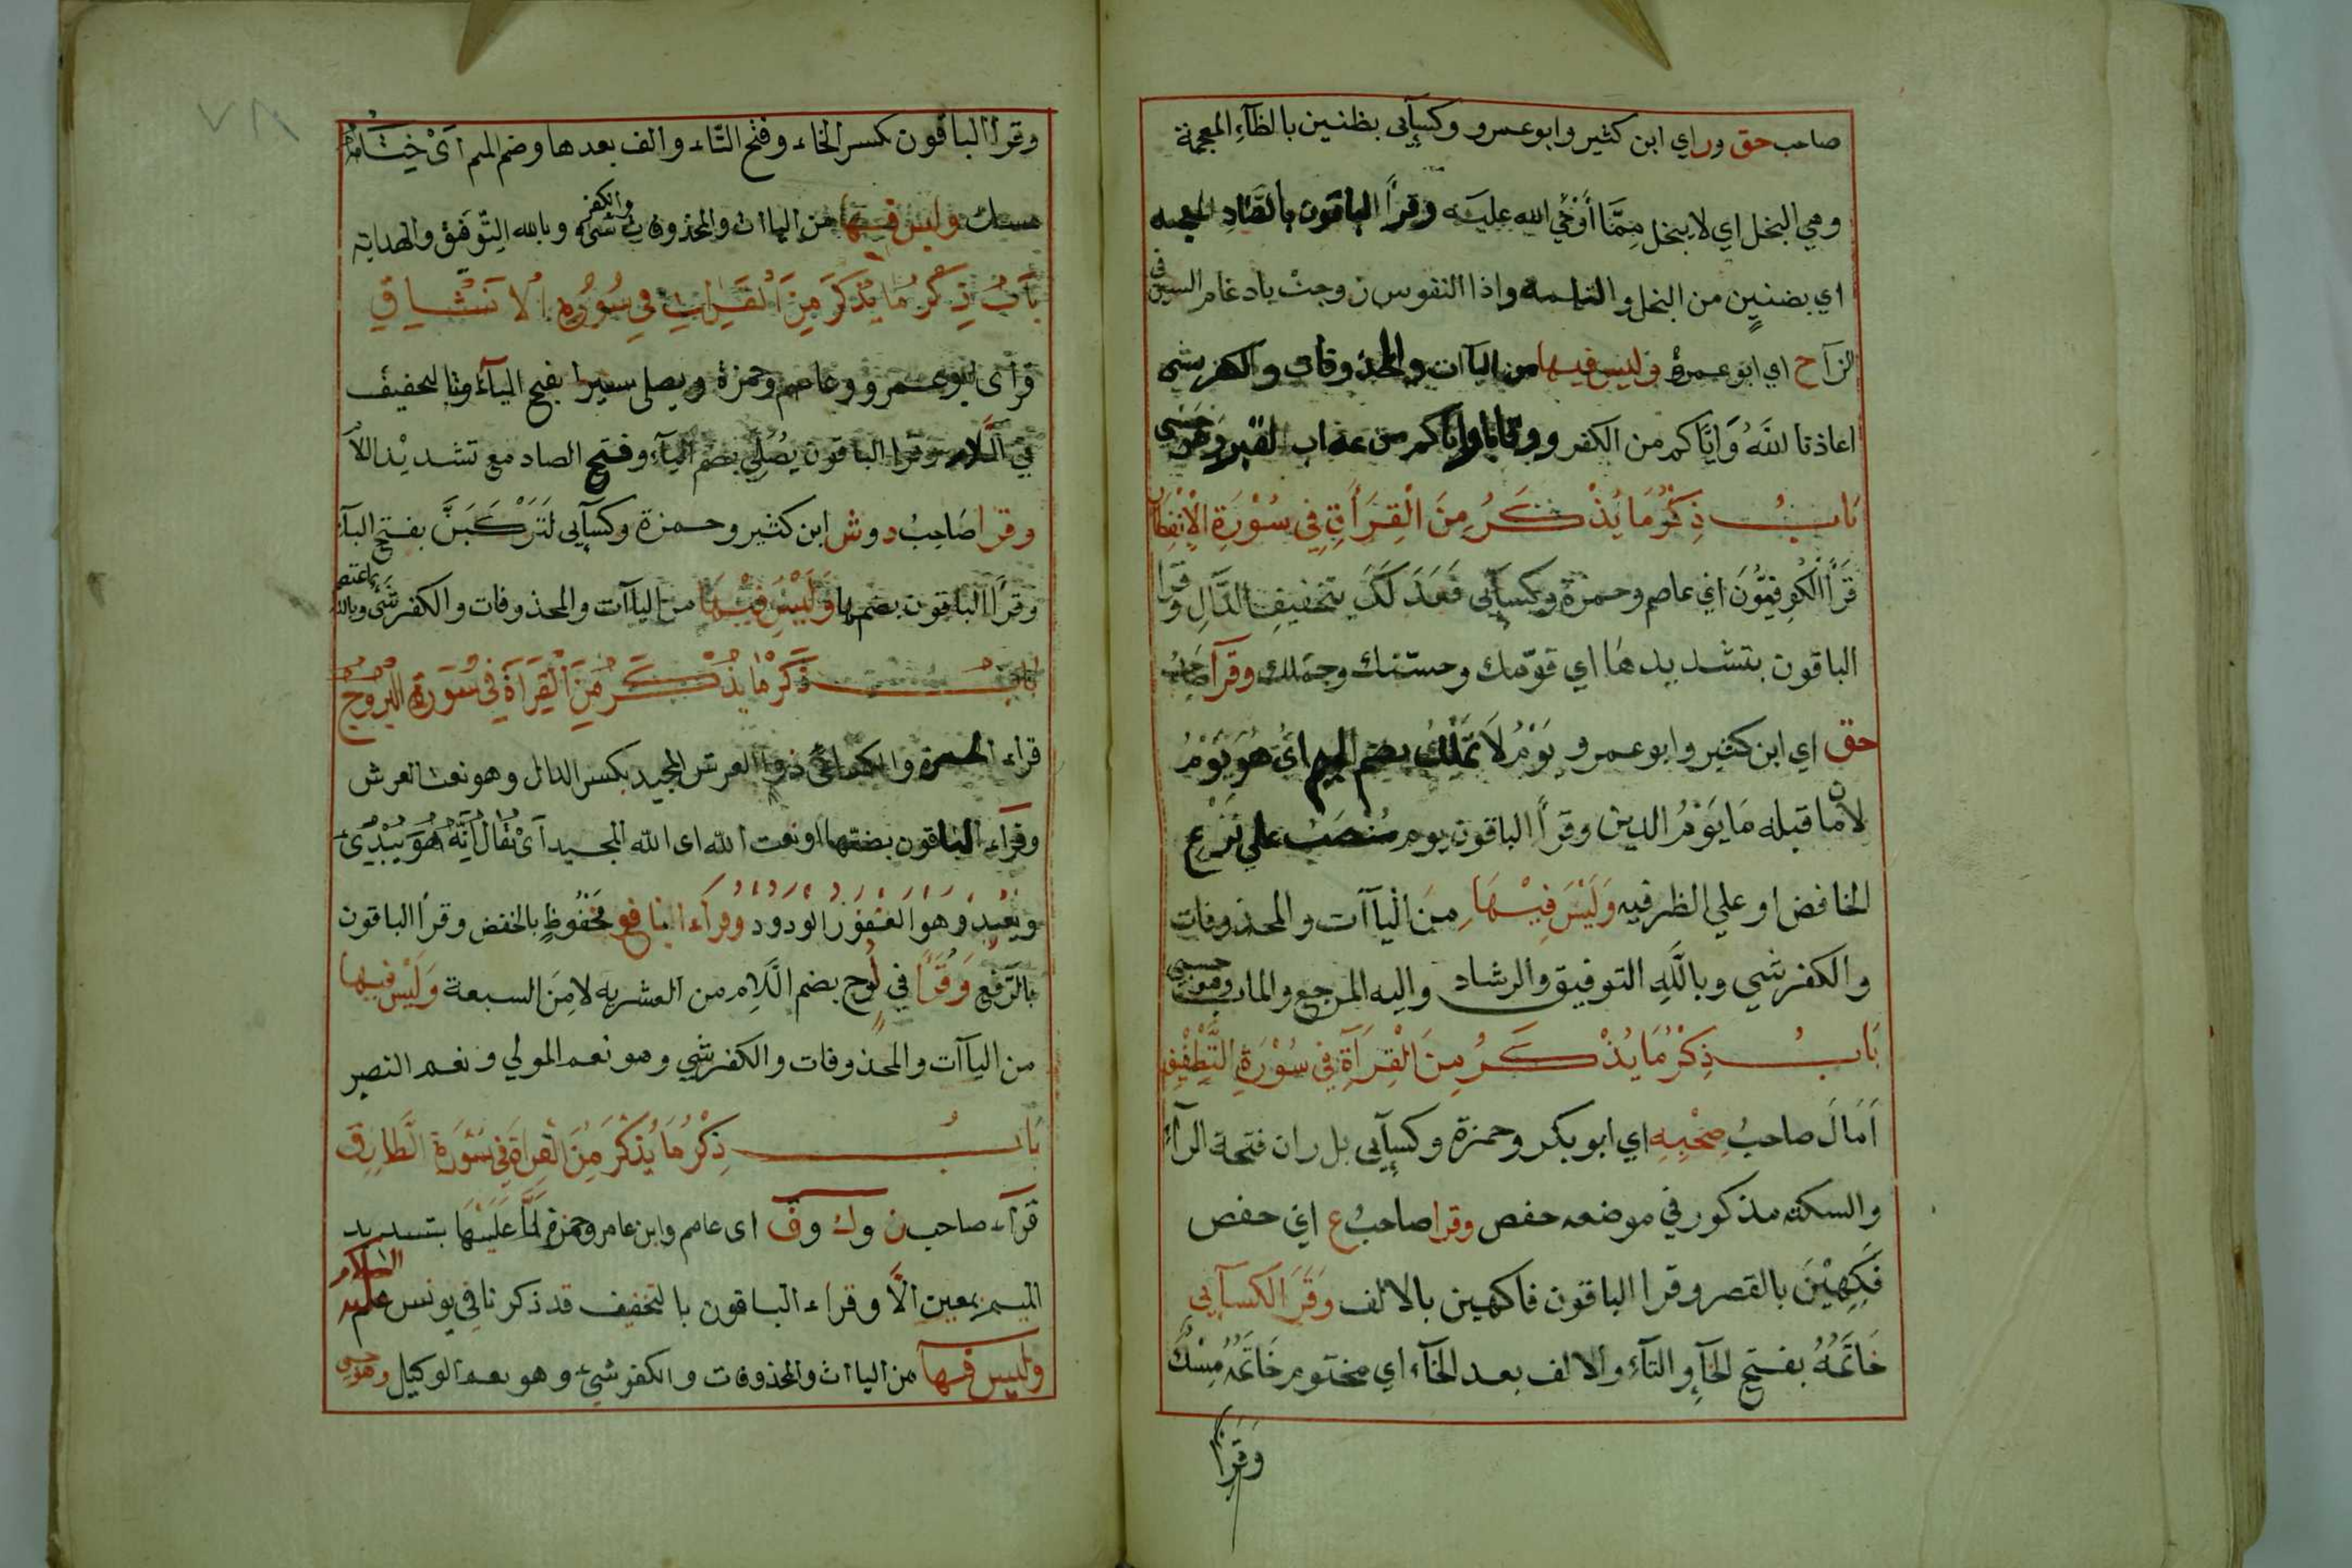 صاحب حق وراي ابن كثير وابوعمرو وكسآئى بظنين بالظآء المعجمة
وهي البخل اي لا يبخل مِمَّا أُوْحِي الله عليه وقرأ الباقون بالضاد المعجمه
اي بضنينٍ من البخل واذا النفوس زوجت بادغام السين في
الزآح اي ابوعمرو وليس فيها من اليآات والمحذوفات والكفر شى
اعاذنا اللهُ وَايّاكم من الكفر ووقانا واياكم من عذاب القبر وهو حسبى
بَابُ ذِكْرُ مَا يُذْكَرُ مِنَ الْقِرَأةِ فِي سُوْرَةِ الْاِنْفِطَار
قَرَأَ الْكُوفِيُّوْنَ اي عاصم وحمزة وكسآئى فَعَدَلَكَ بتخفيف الدَّالِ وقرا
الباقون بتشديدها اي قوّمك وحسّنك وجمّلك وقرأ صاحبُ
حق اي ابن كثير وابوعمرو يَوْمُ لَا تَمْلِكُ بضم الميم اىْ هُوَ يَوْمُ
لان ما قبله مَا يَوْمُ الدين وقرأ الباقون يوم مُنْصَبٌ علي نَزْعِ
الخافض او علي الظرفيه وَلَيْسَ فِيْهَا مِنَ الْيآآت والمحذوفات
والكفر شي وبالله التوفيق والرشاد واليه المرجع والماب وهو حسبي
بَابُ ذِكْرُ مَا يُذْكَرُ مِنَ الْقِرَآةِ فِي سُوْرَةِ التَّطْفِيْفِ
اَمَالَ صاحبُ صُحْبِهِ اي ابوبكر وحمزة وكسآئى بل ران فتحة الرآء
والسكته مذكور في موضعه حفص وقرا صاحبُ ع اي حفص
فَكِهِيْنَ بالقصر وقرا الباقون فاكهين بالالف وَقَرَ الكسآئي
خَاتَمُهُ بفتح الخآءِ والتآءِ والالف بعد الخآء اي مختوم خَاتَمُهُ مِسْكٌ
وَقَرَأَ
٧٨
وقرا الباقون بكسر الخاء وفتح التّاء والف بعدها وضم الميم اىْ خِتَامُهُ
مسك وليس فيها من الياات والمحذوفات والكفر شىء وبالله التّوفيق والهداية
بَابُ ذِكْرُ مَا يُذْكَرَ مِنَ الْقَرِاتِ فِي سُوْرَةِ الْانْشِاقِ
قرأى ابوعمرو وعاصم وحمزة ويصلى سعيرا بفتح اليآء وبالتخفيف
في اللّام وقرا الباقون يُصَلّي بضم اليآء وفتح الصاد مع تشديد اللاّ
وقرا صَاحِبُ دوش ابن كثير وحمزة وكسآئى لَتَرْكَبَنَّ بفتح البآء
وقرأ الباقون بضمها وَلَيْسَ فِيْهَا من اليآآت والمحذوفات والكفر شَىْ وبالله اعتصم
بابُ ذَكْرُ مَا يُذْكَرُ مِنَ الْقِرَآةِ فِي سُوَرَةِ الْبُرُوْجُ
قراء الحمزة والكسائى ذو العرش المجيد بكسر الدال وهو نعت العرش
وقراء الباقون بضمّها او نعت الله اى الله المجيد اىْ يُقَالُ اِنَّهُ هُوَ يُبْدِئُ
ويعيد وهو الغفور الودود وقراء النافع محفوظٍ بالخفض وقرا الباقون
بالرّفع وَقُرَأَ في لُوحٍ بضم اللّام من العشريه لا مِنَ السبعة وَلَيْسَ فيها
من اليآآت والمحذوفات والكفر شي وهو نعم المولي ونعم النصير
بَابُ ذِكْرُ مَا يُذْكَرَ مِنَ الْقِراةِ فِي سُوَرةِ الَّطارِقِ
قرآء صاحب ن وك وف اى عاصم وابن عامر وحمزة لَمَّا عَلَيْهَا بتسديد
الميم بمعين الَّا وقراء الباقون بالتخفيف قد ذكرنا في يونس عليه السلام
وليس فيها من الياات والمحذوفات والكفر شىء وهو نعم الوكيل وهو حسبى